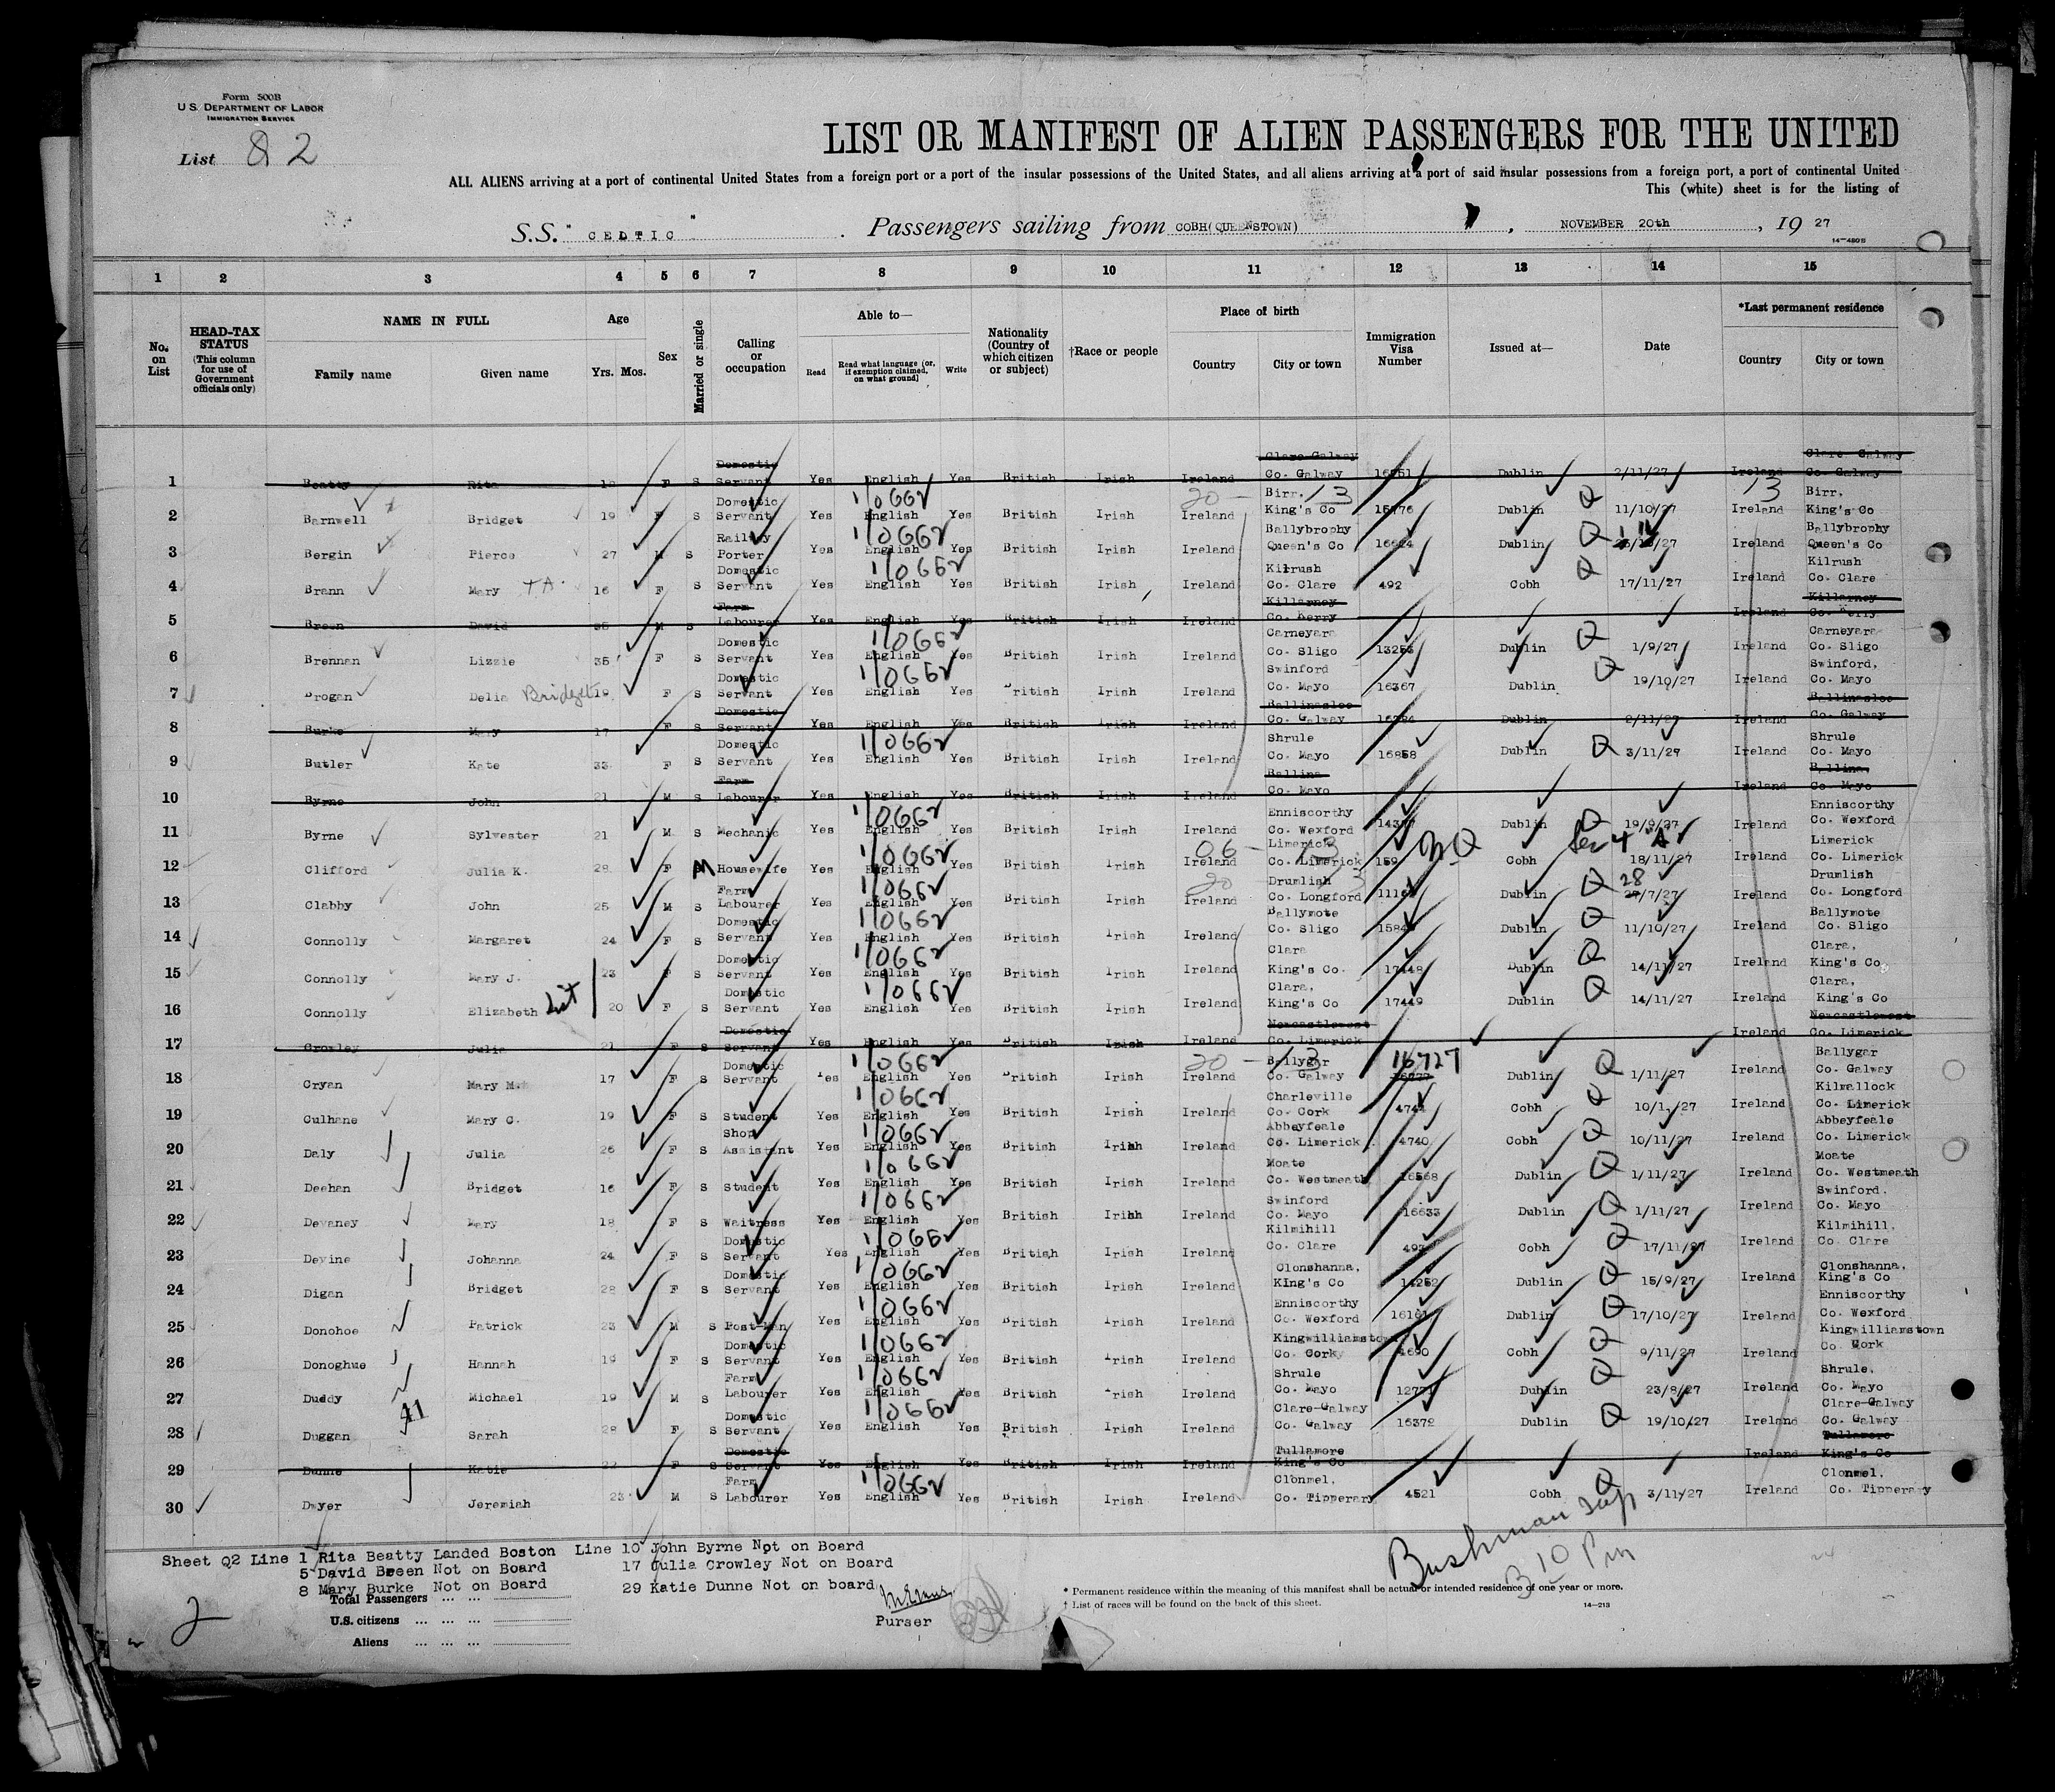 Form 500B
U.S. DEPARTMENT OF LABOR
IMMIGRATION SERVICE
List Q 2
LIST OR MANIFEST OF ALIEN PASSENGERS FOR THE UNITED
ALL ALIENS arriving at a port of continental United States from a foreign port or a port of the insular possessions of the United States, and all aliens arriving at a port of said insular possessions from a foreign port, a port of continental United
This (white) sheet is for the listing of
S.S. "CELTIC" Passengers sailing from COBH(QUEENSTOWN), NOVEMBER 20th, 19 27
1 2 3 4 5 6 7 8 9 10 11 12 13 14 15
No. on List HEAD-TAX STATUS (This column for use of Government officials only) NAME IN FULL Family name Given name Age Yrs. Mos. Sex Married or single Calling or occupation Able to— Read Read what language (or, if exemption claimed, on what ground) Write Nationality (Country of which citizen or subject) †Race or people Place of birth Country City or town Immigration Visa Number Issued at— Date *Last permanent residence Country City or town
1 Beatty Rita 18 F S Domestic Servant Yes English Yes British Irish Ireland Clare Galway Co. Galway 16851 Dublin 2/11/27 Ireland Clare Galway Co. Galway
2 Barnwell Bridget 19 F S Domestic Servant Yes English Yes British Irish Ireland Birr, King's Co 15776 Dublin 11/10/27 Ireland Birr, King's Co
3 Bergin Pierce 27 M S Railway Porter Yes English Yes British Irish Ireland Ballybrophy Queen's Co Dublin Ireland Ballybrophy Queen's Co
4 Brann Mary 16 F S Domestic Servant Yes English Yes British Irish Ireland Kilrush Co. Clare 492 Cobh 17/11/27 Ireland Kilrush Co. Clare
5 Breen David 35 M S Farm Labourer Yes English Yes British Irish Ireland Killarney Co. Kerry Ireland Killarney Co. Kerry
6 Brennan Lizzie 35 F S Domestic Servant Yes English Yes British Irish Ireland Carneyara Co. Sligo 13253 Dublin 1/9/27 Ireland Carneyara Co. Sligo
7 Brogan Delia Bridget 19 F S Domestic Servant Yes English Yes British Irish Ireland Swinford Co. Mayo 16367 Dublin 19/10/27 Ireland Swinford, Co. Mayo
8 Burke Mary 17 F S Domestic Servant Yes English Yes British Irish Ireland Ballinasloe Co. Galway Dublin 2/11/27 Ireland Ballinasloe Co. Galway
9 Butler Kate 33 F S Domestic Servant Yes English Yes British Irish Ireland Shrule Co. Mayo 16858 Dublin 3/11/27 Ireland Shrule Co. Mayo
10 Byrne John 21 M S Farm Labourer Yes English Yes British Irish Ireland Ballina Co. Mayo Ireland Ballina, Co. Mayo
11 Byrne Sylvester 21 M S Mechanic Yes English Yes British Irish Ireland Enniscorthy Co. Wexford Dublin 19/9/27 Ireland Enniscorthy Co. Wexford
12 Clifford Julia K. 28 F M Housewife Yes English Yes British Irish Ireland Limerick Co. Limerick 159 Cobh 18/11/27 Ireland Limerick Co. Limerick
13 Clabby John 25 M S Farm Labourer Yes English Yes British Irish Ireland Drumlish Co. Longford Dublin 28/7/27 Ireland Drumlish Co. Longford
14 Connolly Margaret 24 F S Domestic Servant Yes English Yes British Irish Ireland Ballymote Co. Sligo Dublin 11/10/27 Ireland Ballymote Co. Sligo
15 Connolly Mary J. 23 F S Domestic Servant Yes English Yes British Irish Ireland Clara King's Co. 17448 Dublin 14/11/27 Ireland Clara, King's Co
16 Connolly Elizabeth 20 F S Domestic Servant Yes English Yes British Irish Ireland Clara, King's Co 17449 Dublin 14/11/27 Ireland Clara, King's Co
17 Crowley Julia 21 F S Domestic Servant Yes English Yes British Irish Ireland Newcastlewest Co. Limerick Ireland Newcastlewest Co. Limerick
18 Cryan Mary M. 17 F S Domestic Servant Yes English Yes British Irish Ireland Ballygar Co. Galway 16727 Dublin 1/11/27 Ireland Ballygar Co. Galway
19 Culhane Mary C. 19 F S Student Yes English Yes British Irish Ireland Charleville Co. Cork Cobh 10/11/27 Ireland Kilmallock Co. Limerick
20 Daly Julia 26 F S Shop Assistant Yes English Yes British Irish Ireland Abbeyfeale Co. Limerick 4740 Cobh 10/11/27 Ireland Abbeyfeale Co. Limerick
21 Deehan Bridget 16 F S Student Yes English Yes British Irish Ireland Moate Co. Westmeath 16568 Dublin 1/11/27 Ireland Moate Co. Westmeath
22 Devaney Mary 18 F S Waitress Yes English Yes British Irish Ireland Swinford Co. Mayo 16633 Dublin 1/11/27 Ireland Swinford. Co. Mayo
23 Devine Johanna 24 F S Domestic Servant Yes English Yes British Irish Ireland Kilmihill Co. Clare Cobh 17/11/27 Ireland Kilmihill, Co. Clare
24 Digan Bridget 28 F S Domestic Servant Yes English Yes British Irish Ireland Clonshanna, King's Co 14252 Dublin 15/9/27 Ireland Clonshanna, King's Co
25 Donohoe Patrick 23 M S Post-Man Yes English Yes British Irish Ireland Enniscorthy Co. Wexford Dublin 17/10/27 Ireland Enniscorthy Co. Wexford
26 Donoghue Hannah 19 F S Domestic Servant Yes English Yes British Irish Ireland Kingwilliamstown Co. Cork 4690 Cobh 9/11/27 Ireland Kingwilliamstown Co Cork
27 Duddy Michael 19 M S Farm Labourer Yes English Yes British Irish Ireland Shrule Co. Mayo Dublin 23/8/27 Ireland Shrule, Co. Mayo
28 Duggan Sarah 28 F S Domestic Servant Yes English Yes British Irish Ireland Clare-Galway Co. Galway 16372 Dublin 19/10/27 Ireland Clare-Galway Co. Galway
29 Dunne Katie 22 F S Domestic Servant Yes English Yes British Irish Ireland Tullamore King's Co Ireland Tullamore King's Co
30 Dwyer Jeremiah 23 M S Farm Labourer Yes English Yes British Irish Ireland Clonmel, Co. Tipperary 4521 Cobh 3/11/27 Ireland Clonmel, Co. Tipperary
Sheet Q2 Line 1 Rita Beatty Landed Boston Line 10 John Byrne Not on Board
5 David Breen Not on Board 17 Julia Crowley Not on Board
8 Mary Burke Not on Board 29 Katie Dunne Not on board
Total Passengers
U.S. citizens
Aliens
Purser
* Permanent residence within the meaning of this manifest shall be actual or intended residence of one year or more.
† List of races will be found on the back of this sheet.
14—213
Bushman